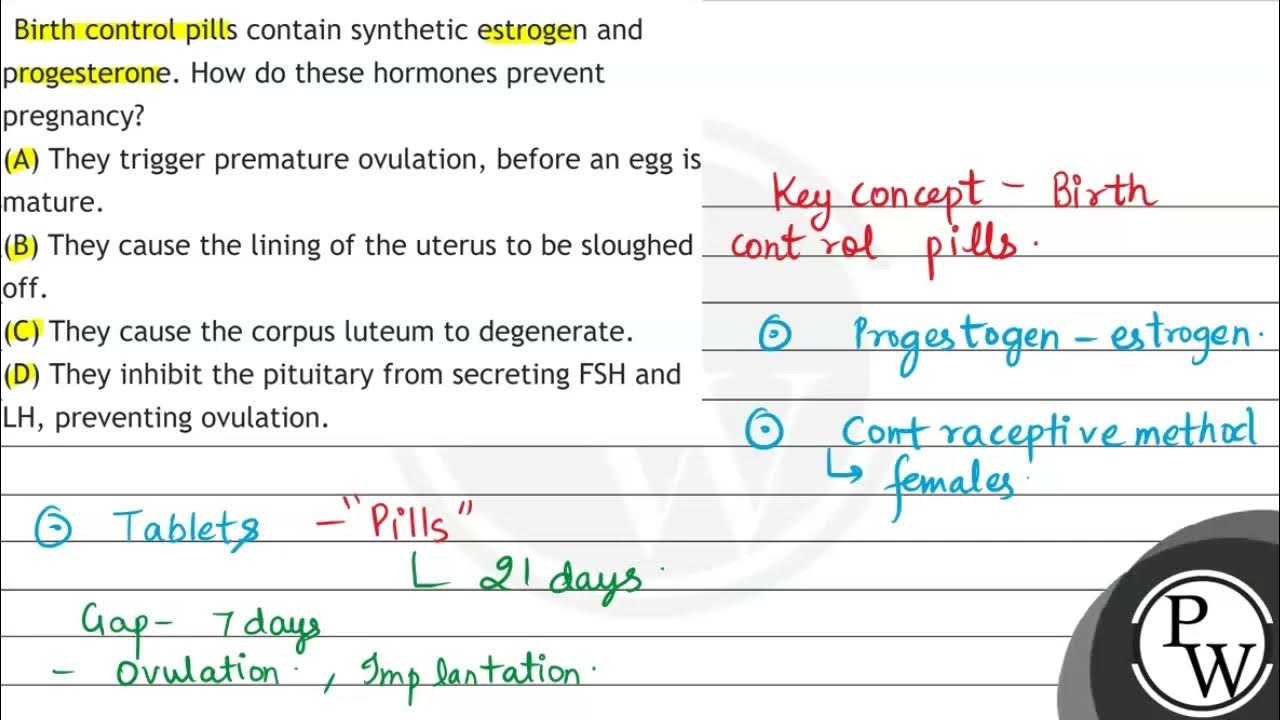 Birth control pills contain synthetic estrogen and
progesterone. How do these hormones prevent
pregnancy?
(A) They trigger premature ovulation, before an egg is
mature.
(B) They cause the lining of the uterus to be sloughed
off.
(C) They cause the corpus luteum to degenerate.
(D) They inhibit the pituitary from secreting FSH and
LH, preventing ovulation.
Key concept - Birth
control pills.
Progestogen - estrogen.
Contraceptive method
↳ females.
Tablets - "Pills"
21 days.
Gap - 7 days
- Ovulation, Implantation.
W
P
W